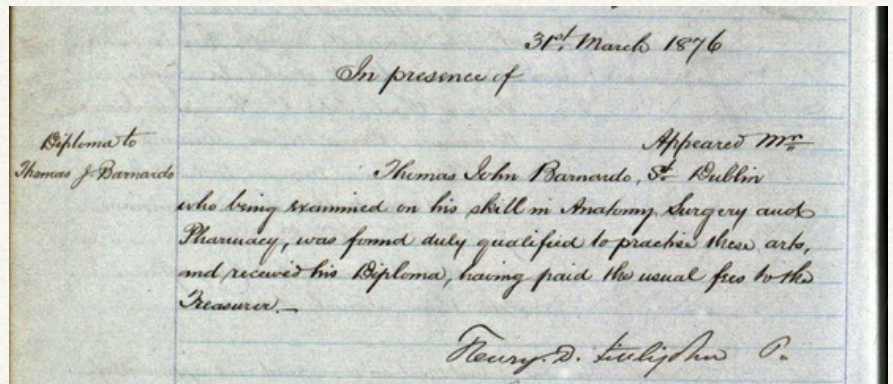 31st March 1876
In presence of
Diploma to
Thomas J. Barnardo
Appeared Mr
Thomas John Barnardo, St Dublin
who being examined on his skill in Anatomy Surgery and
Pharmacy, was found duly qualified to practise these arts,
and received his Diploma, having paid the usual fees to the
Treasurer.—
Henry. D. Littlejohn P.